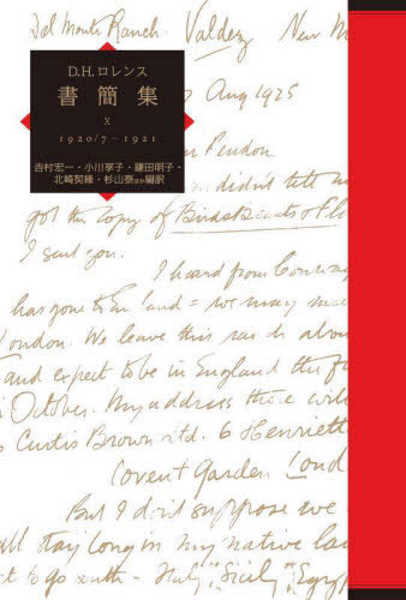 Del Monte Ranch. Valdez New M
D.H.ロレンス
書簡集
X
1920/7－1921
吉村宏一・小川享子・鎌田明子・
北崎契縁・杉山泰ほか編訳
Aug 1925
didn't tell me
got the copy of Birds Beasts & Fl
I sent you.
I heard from
has gone to England = we may
London. We leave this ranch about
and expect to be in England the
October. My address there will
Curtis Brown Ltd. 6 Henriett
Covent Garden Lond
But I don't suppose we
stay long in my native la
to go south - Italy Sicily Egyp